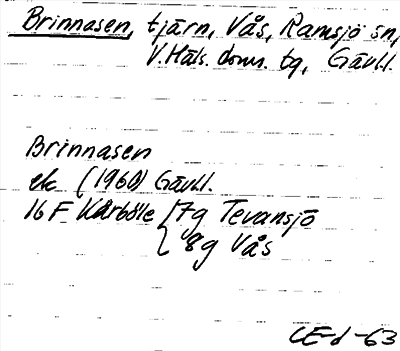 Brinnasen, tjärn, Vås, Ramsjö sn,
V. Häls. doms. tg, Gävl.
Brinnasen
ek (1960) Gävl.
16 F Kårböle { 7g Tevansjö
8g Vås
CE-d-63